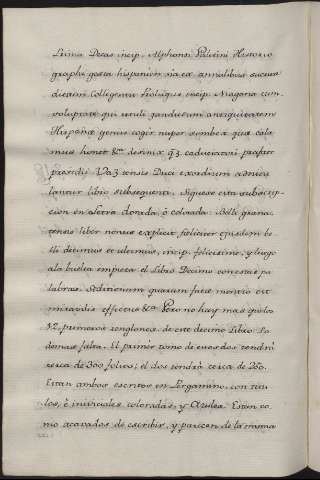 Prima Decas incip. Alphonsi Palentini Historio
graphi gesta hispaniensia ex annalibus suorum
dierum Colligentis Prologus incip. Magna cum
voluptate qui
Hispanæ genus nuper
mius honest &c. desinix
Ducis exordium
libro subsequenti. Siguese esta subscrip-
cion en letra dorada, ò colorada: Belli grana-
tensis liber nonus explicit feliciter ejusdem be-
lli decimus et ultimus, incip. felicissime, y luego
ala buelta empieza el Libro Decimo con estas pa
labras. Seditionum quarum facta mentio est
mirandus effectus &c. Pero no hay mas que los
12, primeros renglones de este decimo Libro: lo
demas falta. El primer tomo de estos dos tendrà
cerca de 300 folios; el dos tendrà cerca de 250.
Estan ambos escritos en Pergamino, con titu-
los, è iniciales coloradas, y Azules. Estan co-
mo acavados de escribir, y parecen de la misma